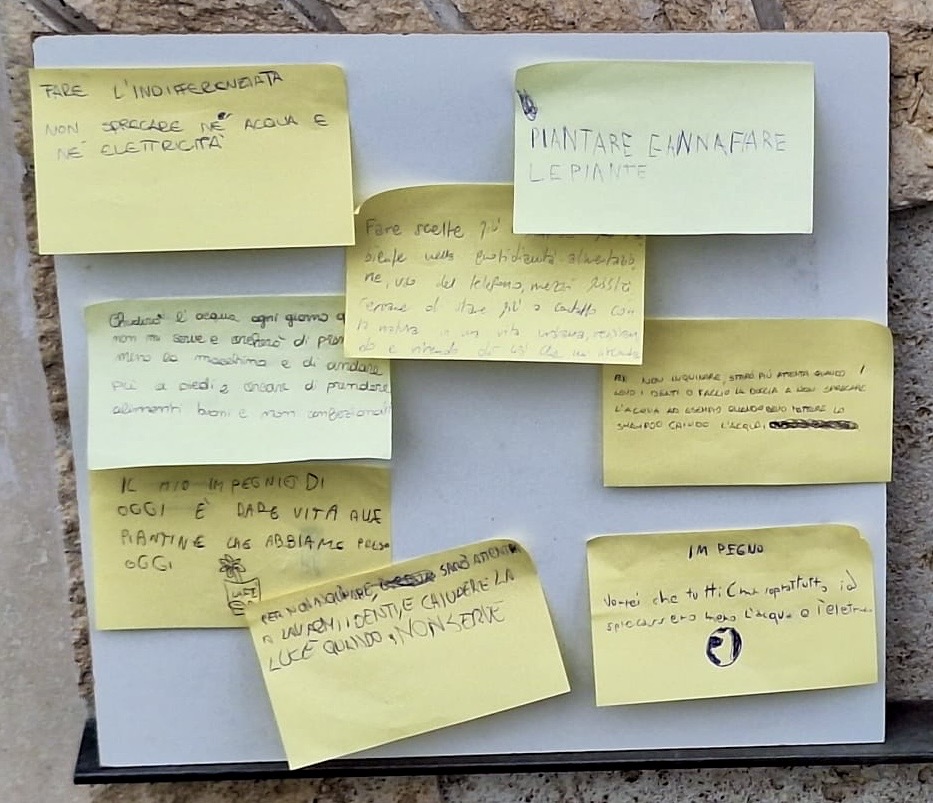 FARE L'INDIFFERENZIATA
NON SPRECARE NE' ACQUA E
NE' ELETTRICITÀ
PIANTARE E ANNAFIARE
LE PIANTE
Fare scelte più
nella quotidianità alimentazio
ne, uso del telefono, mezzi
cercare di stare più a contatto con
la natura in una vita urbana,
do e che un
Chiuderò l'acqua ogni giorno
non mi serve e cercherò di
meno la macchina e di andare
più a piedi e cercare di prendere
alimenti buoni e non confezionati
NON INQUINARE, STARÒ PIÙ ATTENTA QUANDO
LAVO I DENTI O FACCIO LA DOCCIA A NON SPRECARE
L'ACQUA AD ESEMPIO QUANDO DEVO METTERE LO
SHAMPOO CHIUDO L'ACQUA
IL MIO IMPEGNIO DI
OGGI È DARE VITA ALLE
PIANTINE CHE ABBIAME PRESO
OGGI
PER NON INQUINARE, SARÒ ATTENTA
A LAVARMI I DENTI, E CHIUDERE LA
LUCE QUANDO NON SERVE
IMPEGNO
Vorrei che tutti (ma soprattutto io)
sprecassero meno l'acqua e l'elettri